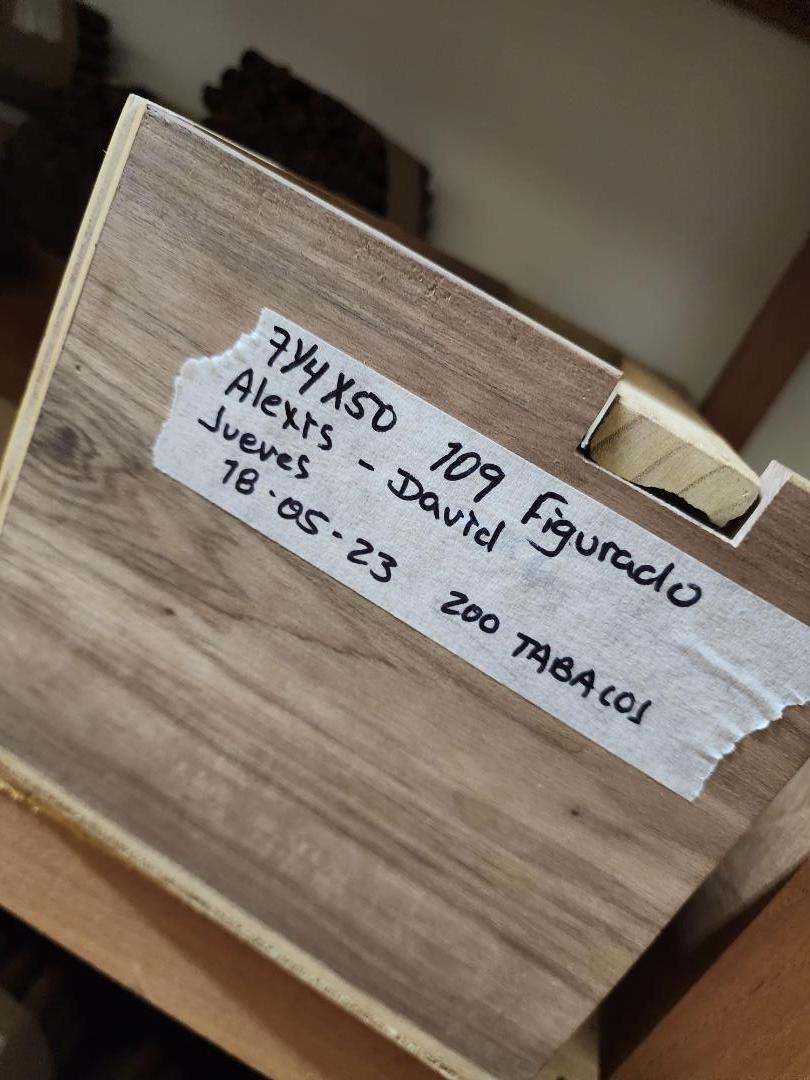 7Y4X50 109 Figurado
Alexis - David
Jueves
18.05.23 200 TABACOS